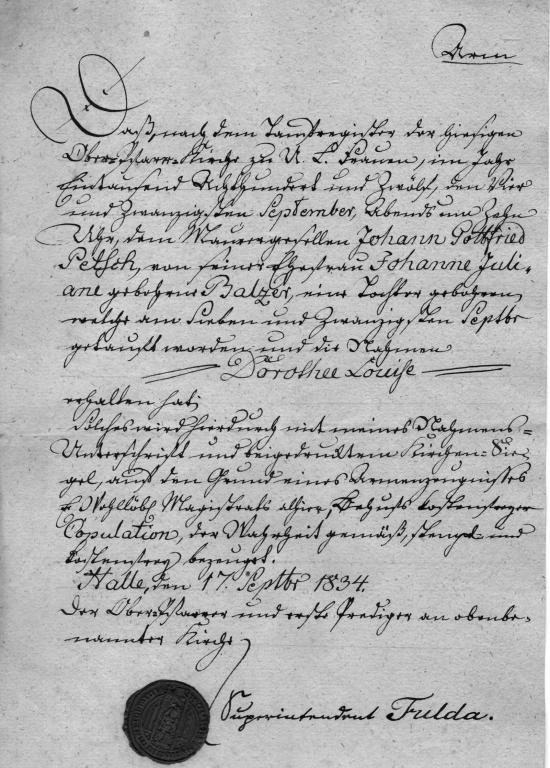 Arm
Daß, nach dem Taufregister der hiesigen
Ober-Pfarr-Kirche zu U. L. Frauen, im Jahr
Eintausend Achthundert und Zwölf, den Vier
und Zwanzigsten September, Abends um Zehn
Uhr, dem Maurergesellen Johann Gottfried
Petsch, von seiner Ehefrau Johanne Juli-
ane gebohrne Balzer, eine Tochter gebohren,
welche am Sieben und Zwanzigsten Septbr
getauft worden und die Nahmen
Dorothee Louise
erhalten hat;
Solches wird hierdurch mit meines Nahmens-
Unterschrift und beigedrucktem Kirchen-Sie-
gel, auf den Grund eines Armenzeugnisses
E. Wohllöbl. Magistrats alhier, Behufs kostenfreyer
Copulation, der Wahrheit gemäß, stempel- und
kostenfrey bezeuget.
Halle, den 17. Septbr 1834.
Der Ober-Pfarrer und erste Prediger an obenbe-
nannter Kirche
Superintendent Fulda.